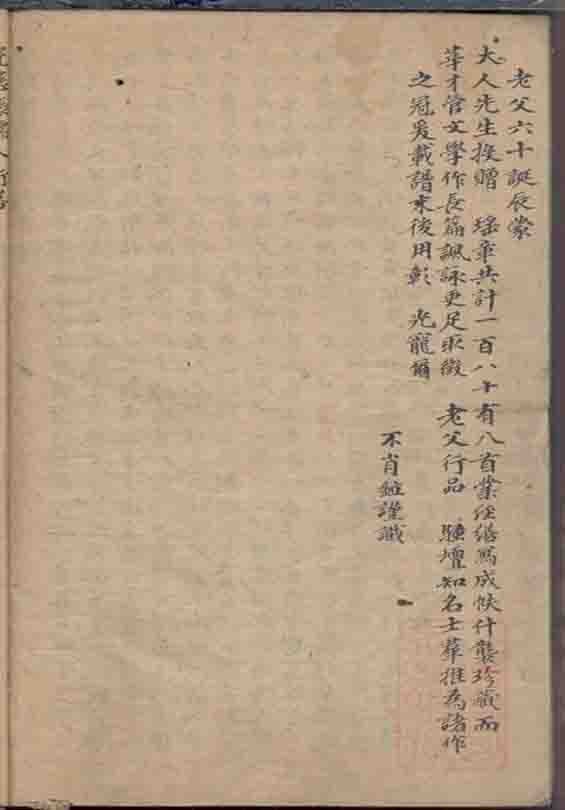 老父六十誕辰蒙
大人先生投贈 瑤章共計一百八十有八首業經繕寫成帙什襲珍藏而
莘才管文學作長篇諷詠更足末徵 老父行品 騷壇知名士羣推為諸作
之冠爰載譜末後用彰 光寵爾
不肖 謹識